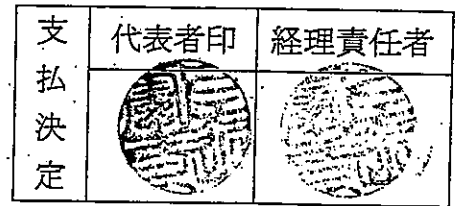 支払決定
代表者印
経理責任者